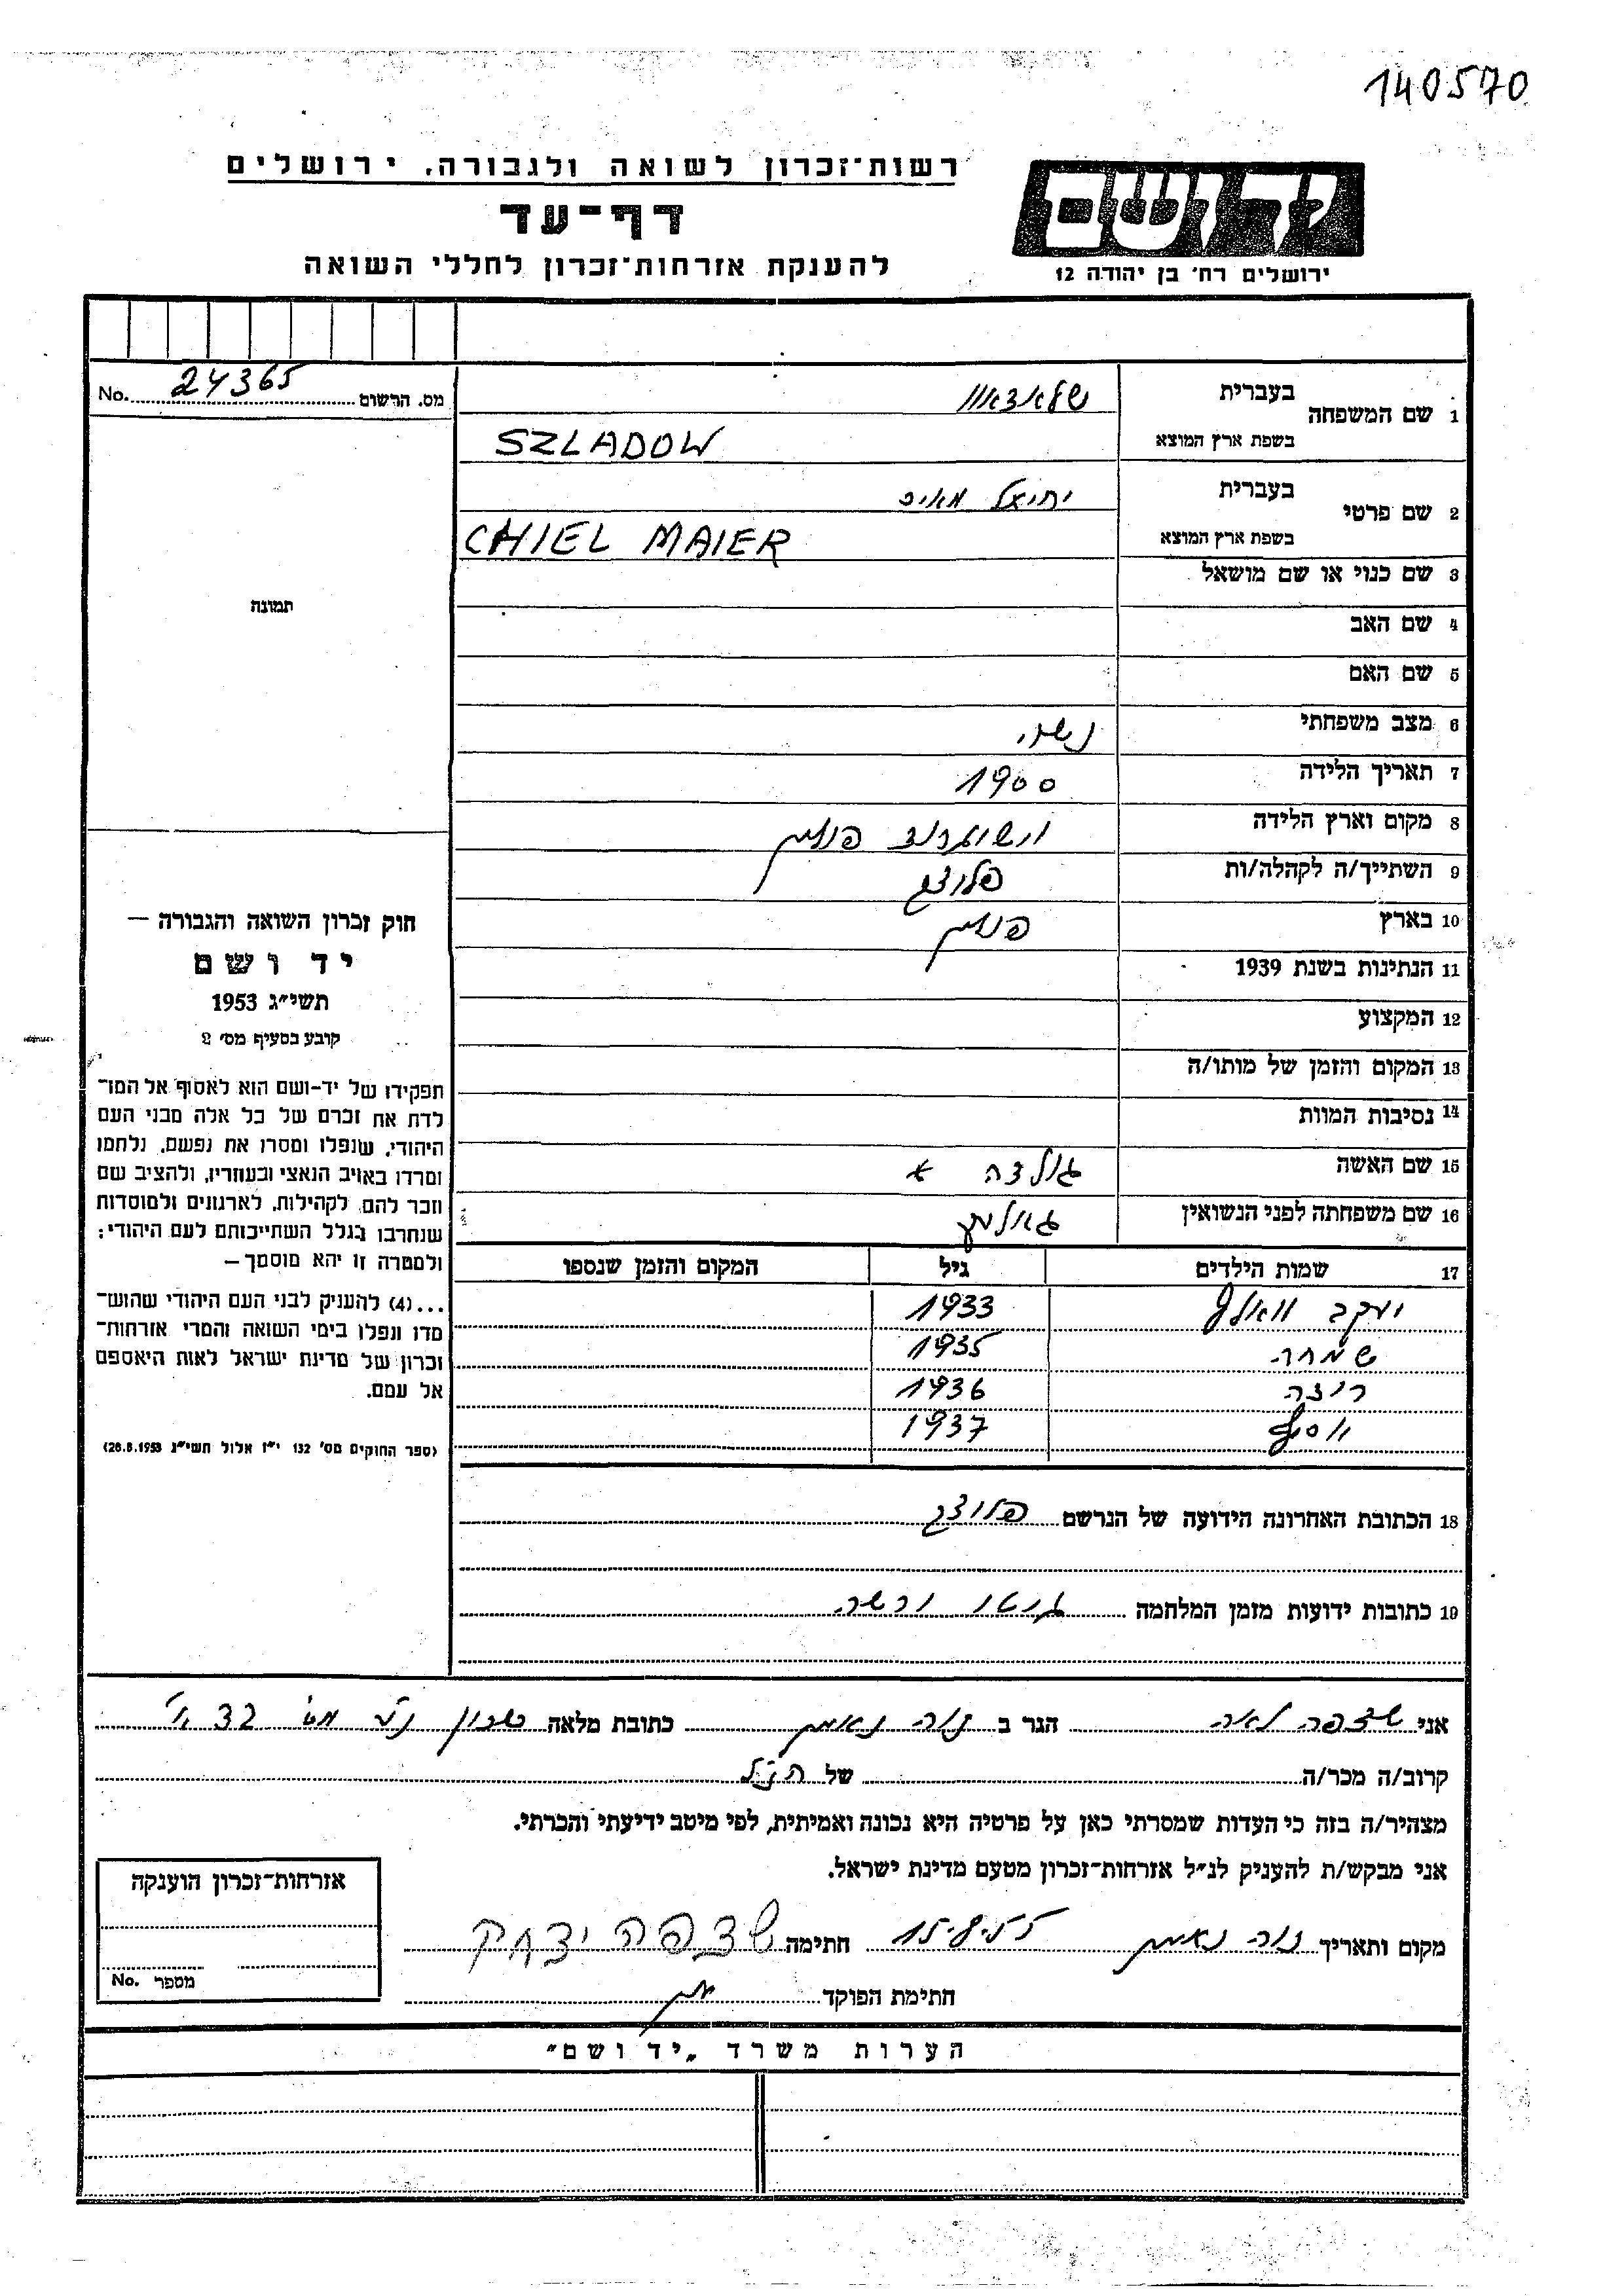 140570
רשות־זכרון לשואה ולגבורה, ירושלים
דף־עד
להענקת אזרחות־זכרון לחללי השואה
יד ושם
ירושלים רח' בן יהודה 12
מס. הרשום 24365 No.
1 שם המשפחה
בעברית שלאדאוו
בשפת ארץ המוצא SZLADOW
2 שם פרטי
בעברית יחיאל מאיר
בשפת ארץ המוצא CHIEL MAIER
3 שם כנוי או שם מושאל
4 שם האב
5 שם האם
6 מצב משפחתי נשוי
7 תאריך הלידה 1900
8 מקום וארץ הלידה פולין
9 השתייך/ה לקהלה/ות פלוצק
10 בארץ פולין
11 הנתינות בשנת 1939
12 המקצוע
13 המקום והזמן של מותו/ה
14 נסיבות המוות
15 שם האשה גולדה א
16 שם משפחתה לפני הנשואין
17 שמות הילדים גיל המקום והזמן שנספו
יעקב וואלף 1933
שמחה 1935
רוזה 1936
יוסף 1937
18 הכתובת האחרונה הידועה של הנרשם פלוצק
19 כתובות ידועות מזמן המלחמה גיטו ורשה
תמונה
חוק זכרון השואה והגבורה —
יד ושם
תשי״ג 1953
קובע בסעיף מס׳ 2
תפקידו של יד-ושם הוא לאסוף אל המו־
לדת את זכרם של כל אלה מבני העם
היהודי, שנפלו ומסרו את נפשם, נלחמו
ומרדו באויב הנאצי ובעוזריו, ולהציב שם
וזכר להם, לקהילות, לארגונים ולמוסדות
שנחרבו בגלל השתייכותם לעם היהודי;
ולמטרה זו יהא מוסמך —
...(4) להעניק לבני העם היהודי שהוש־
מדו ונפלו בימי השואה והמרי אזרחות־
זכרון של מדינת ישראל לאות היאספם
אל עמם.
(ספר החוקים מס׳ 132 י״ז אלול תשי״ג 28.8.1953)
אני שדפה לאה הגר ב נוה נאמן כתובת מלאה שכון
קרוב/ה מכר/ה של הנ״ל
מצהיר/ה בזה כי העדות שמסרתי כאן על פרטיה היא נכונה ואמיתית, לפי מיטב ידיעתי והכרתי.
אני מבקש/ת להעניק לנ״ל אזרחות־זכרון מטעם מדינת ישראל.
מקום ותאריך נוה נאמן 15.8.55 חתימה שדפה יצחק
חתימת הפוקד
אזרחות־זכרון הוענקה
מספר No.
הערות משרד „יד ושם״